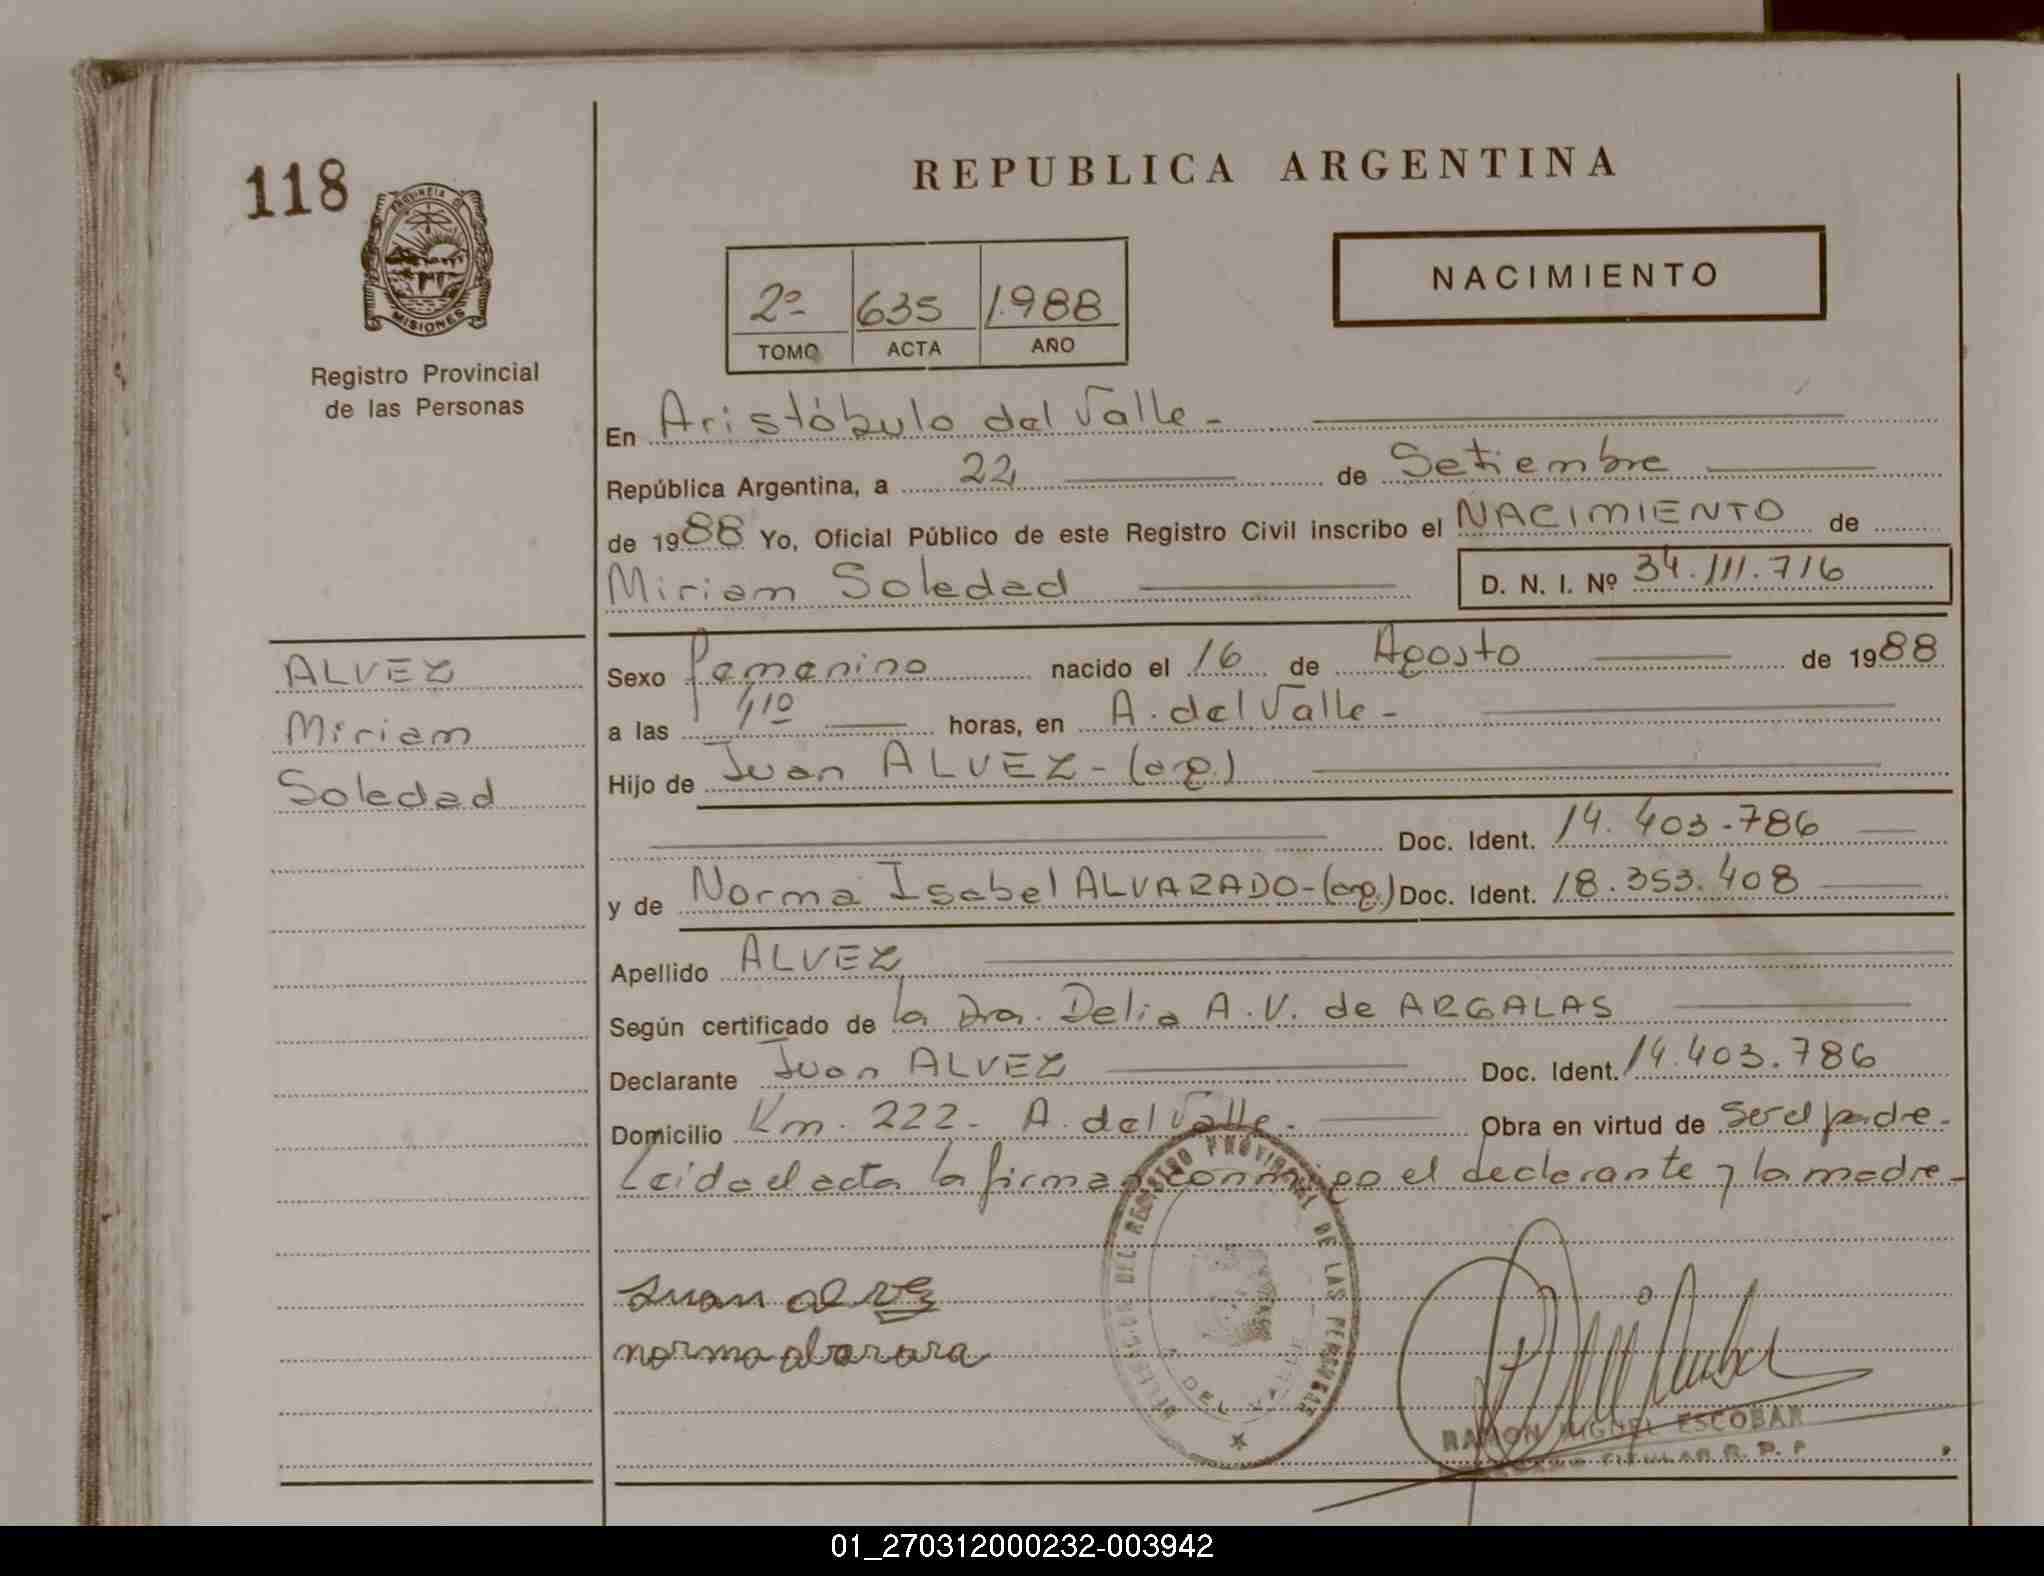 118
PROVINCIA D
MISIONES
Registro Provincial
de las Personas
REPUBLICA ARGENTINA
NACIMIENTO
2º 635 1.988
TOMO ACTA AÑO
En Aristóbulo del Valle -
República Argentina, a 22 de Setiembre
de 1988 Yo, Oficial Público de este Registro Civil inscribo el NACIMIENTO de
Miriam Soledad D. N. I. Nº 34.111.716
ALVEZ
Miriam
Soledad
Sexo femenino nacido el 16 de Agosto de 1988
a las horas, en A. del Valle -
Hijo de Juan ALVEZ - (arg.)
Doc. Ident. 14.403.786
y de Norma Isabel ALVARADO - (arg.) Doc. Ident. 18.353.408
Apellido ALVEZ
Según certificado de la Dra. Delia A.V. de ARGALAS
Declarante Juan ALVEZ Doc. Ident. 14.403.786
Domicilio Km. 222 - A. del Valle - Obra en virtud de ser el padre -
Leida el acta la firman conmigo el declarante y la madre -
DEL REGISTRO PROVINCIAL DE LAS PERSONAS
DEL VALLE
Juan alvez
norma
RAMON MIGUEL ESCOBAR
TITULAR R. P. P.
01_270312000232-003942